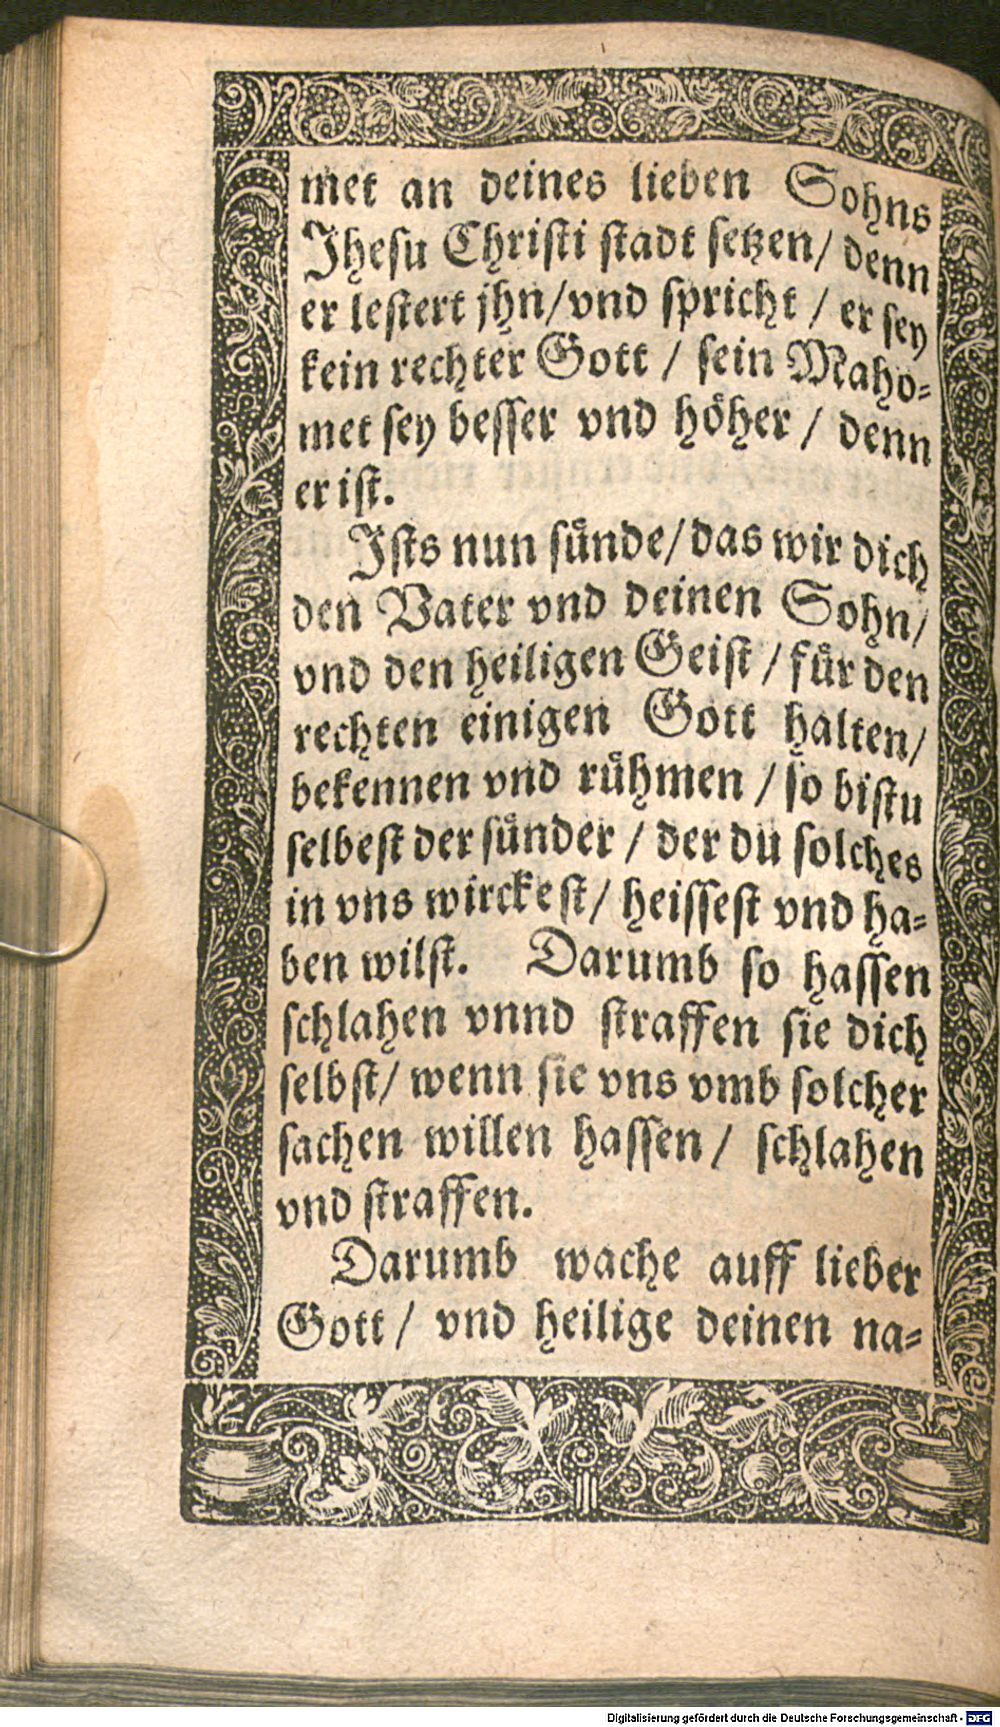 met an deines lieben Sohns
Jhesu Christi stadt setzen/ denn
er lestert jhn/vnd spricht / er sey
kein rechter Gott / sein Maho⸗
met sey besser vnd höher / denn
er ist.
Jsts nun sünde/das wir dich
den Vater vnd deinen Sohn/
vnd den heiligen Geist / für den
rechten einigen Gott halten/
bekennen vnd rühmen / so bistu
selbest der sünder / der du solches
in vns wirckest/ heissest vnd ha⸗
ben wilst. Darumb so hassen
schlahen vnnd straffen sie dich
selbst/ wenn sie vns vmb solcher
sachen willen hassen / schlahen
vnd straffen.
Darumb wache auff lieber
Gott / vnd heilige deinen na⸗
Digitalisierung gefördert durch die Deutsche Forschungsgemeinschaft - DFG